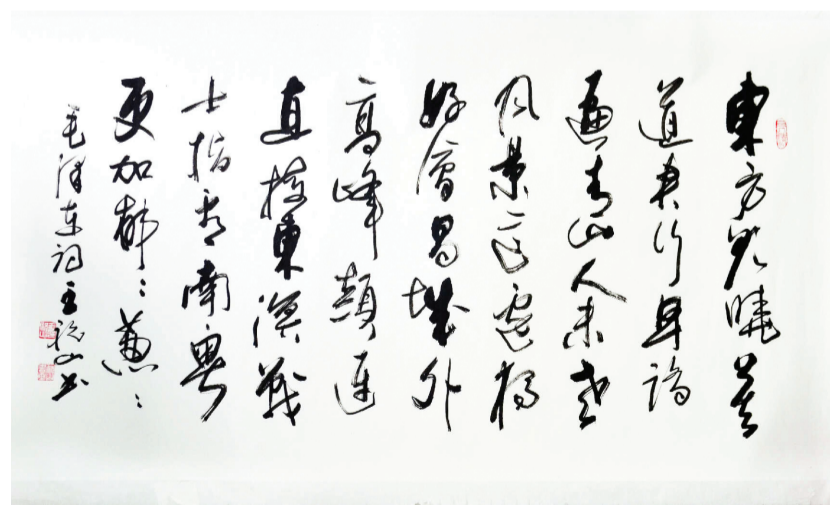 東方欲曉莫
道君行早踏
遍青山人未老
风景這邊獨
好會昌城外
高峰顛連
直接東溟戰
士指看南粵
更加郁々葱々
毛澤东词王山书